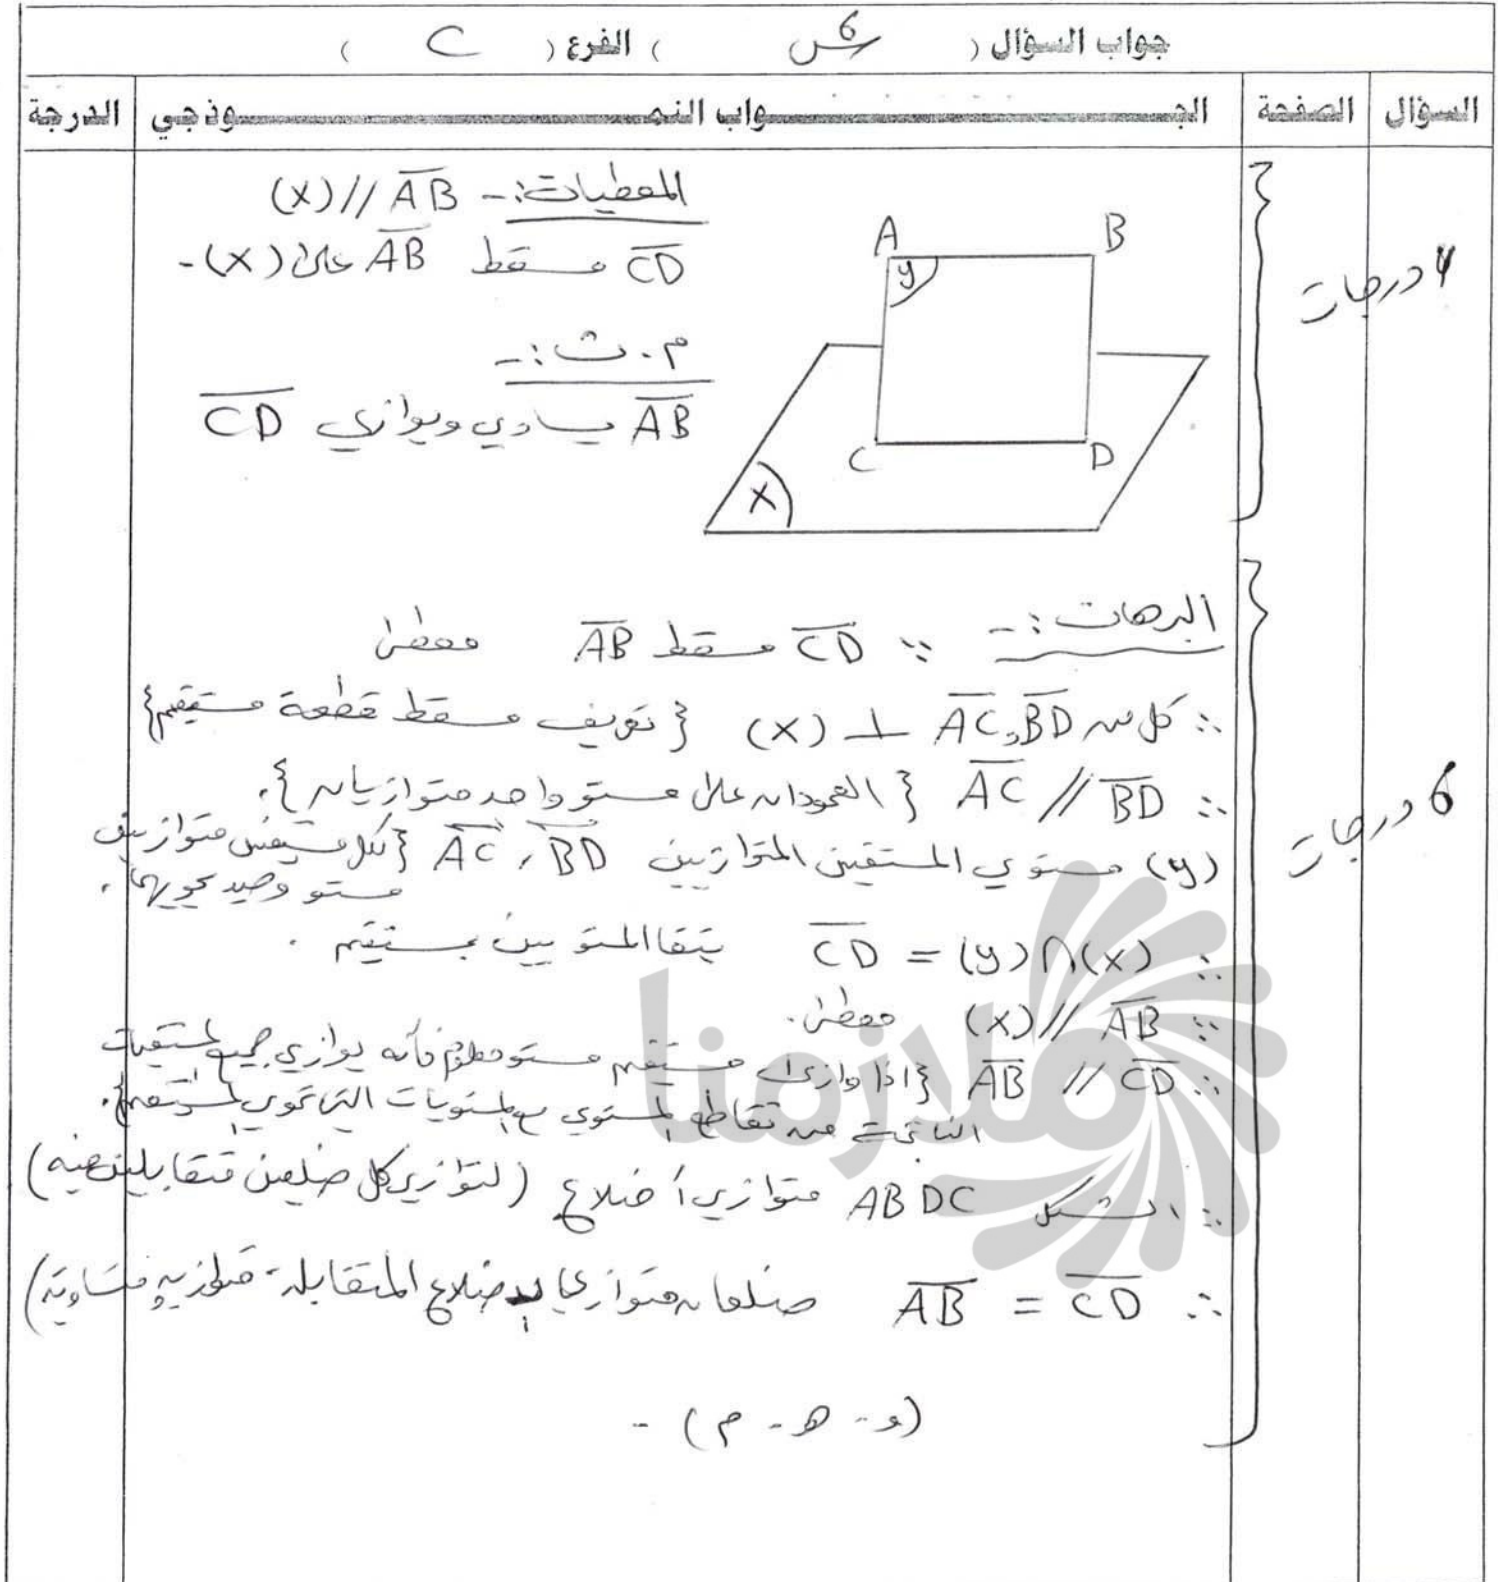 جواب السؤال ( س6 ) الفرع ( C )
السؤال الصفحة الجـــواب النمـــوذجي الدرجة
المعطيات :- (X) // AB
CD مسقط AB على (X) -
م . ث :-
AB يساوي ويوازي CD
A B
y
C D
X
4 درجات
البرهان :- ∵ CD مسقط AB معطى
∴ كل من AC, BD ⊥ (X) { تعريف مسقط قطعة مستقيم }
∴ AC // BD { العمودان على مستو واحد متوازيان } .
(y) مستوي المستقيمين المتوازيين AC , BD { لكل مستقيمين متوازيين
مستو وحيد يحويهما .
∴ CD = (y) ∩ (X) يتقاطع المستويين بمستقيم .
∵ (X) // AB معطى .
∴ AB // CD { اذا وازى مستقيم مستو معلوم فأنه يوازي جميع المستقيمات
الناتجة من تقاطع المستوي مع المستويات التي تحوي المستقيم } .
∴ الشكل ABDC متوازي أضلاع ( لتوازي كل ضلعين متقابلين فيه )
∴ AB = CD ضلعان متوازيا الاضلاع المتقابلة متوازية متساوية )
6 درجات
( و - ه - م ) -
ملازمنا